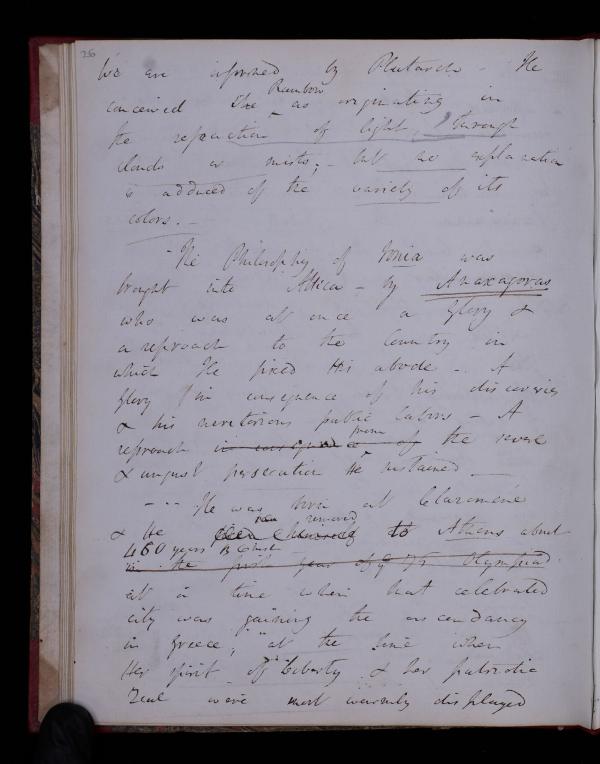 26
We are informed by Plutarch - He
Rainbow
conceived The as originating in
the refraction of light, through
clouds or mists; - but no explanation
is adduced of the variety of its
colors. -
The Philosophy of Ionia was
brought into Attica - by Anaxagoras
who was at once a glory &
a reproach to the Country in
which He fixed His abode - A
glory in consequence of his discoveries
& his meritorious public labors - A
from
reproach in consequence of the severe
& unjust persecution He sustained
- - - He was born at Clazomenè
removed
& He to Athens about
460 years B Christ
in the first year of Olympiad
at a time when that celebrated
city was gaining the ascendancy
in Greece; "at the time when
Her spirit of Liberty & her patriotic
Zeal were most warmly displayed